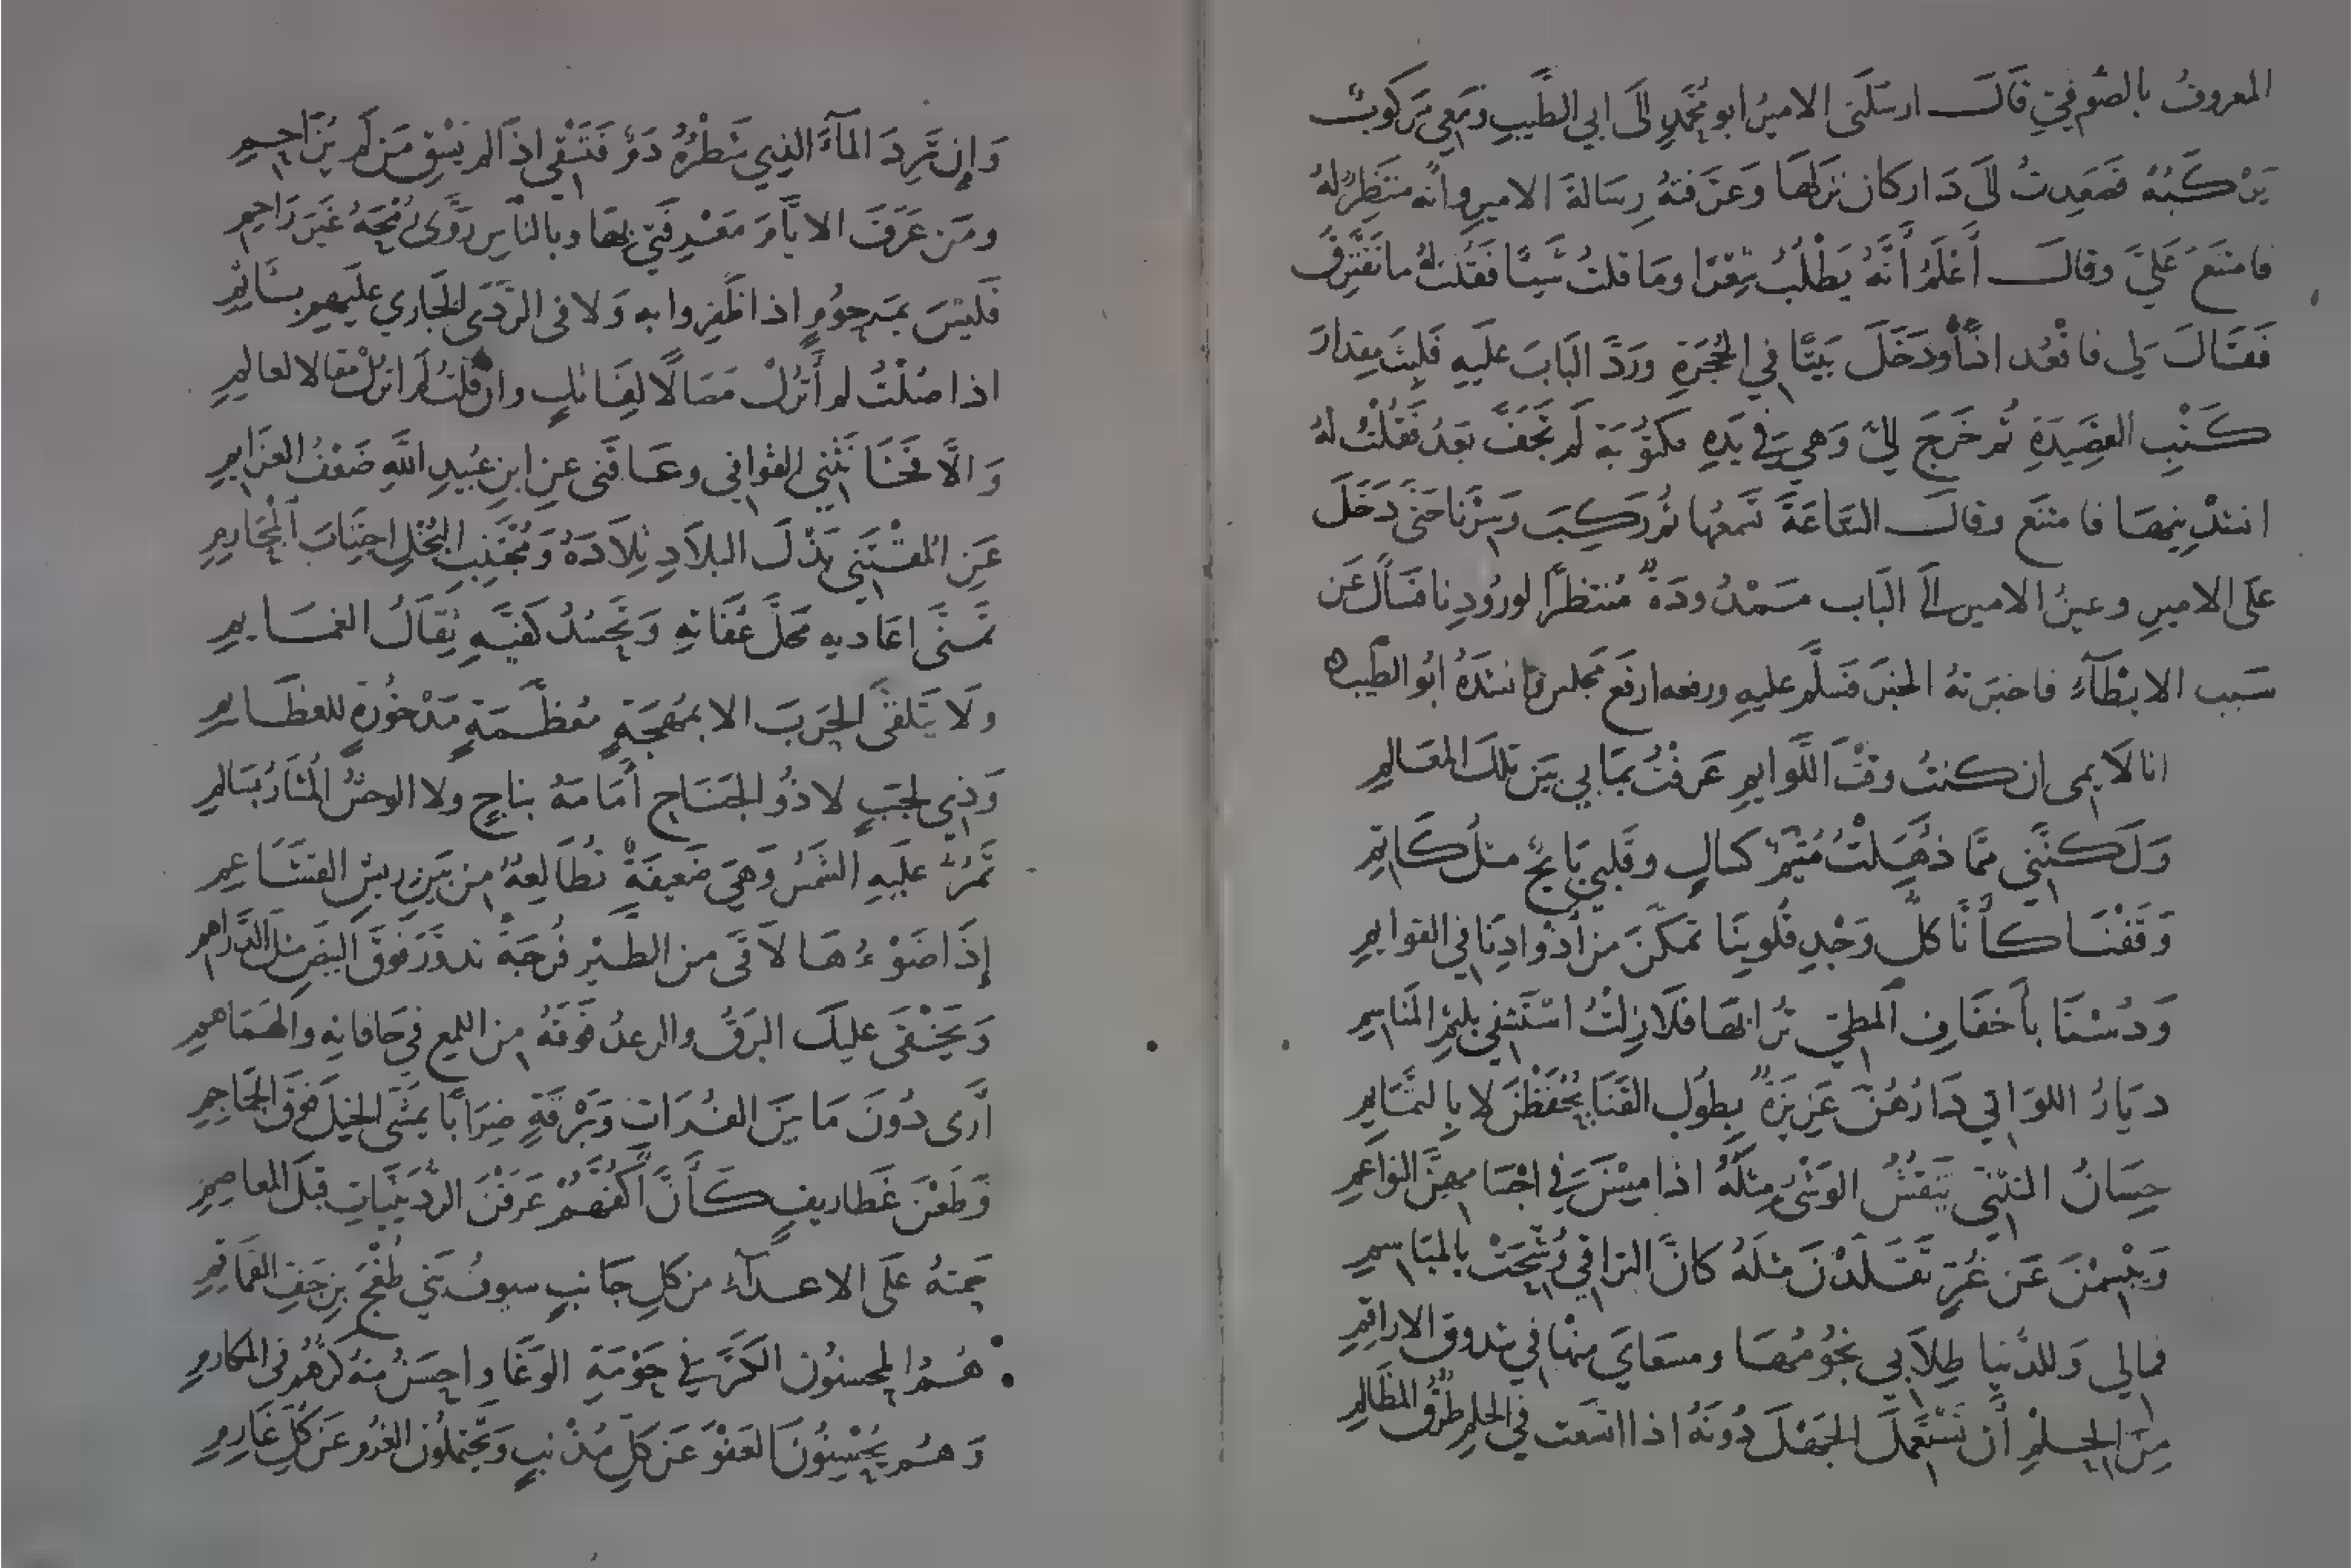 المعروفُ بالصُوفيِّ قَالَ ارسَلَنى الاميرُ ابو مُحَمَّدٍ اِلَى ابي الطَّيِبِ ومَعِي مَركوبٌ
يَرْكَبُهُ فصَعِدتُ اِلَى دَار كان نزلهَا وَعرّفتهُ رِسَالةَ الاميرِ وانّه منتَظِرٌ لهُ
فامتنَعَ عَلَيَّ وقالَ أَعْلَمُ أَنَّهُ يَطْلُبُ شِعْرًا ومَا قلتُ شَيًا فقَلتُ لهُ ما نَفْتَرِقُ
فَقَالَ لِي فاقْعُد اذًا ودَخَلَ بَيتًا فِي الحُجرَةِ ورَدَّ البَابَ عليَهِ فلبِثَ مِقدارَ
كَتْبِ القصِيدَةِ ثُم خَرَجَ اليَّ وَهي في يَدِهِ مكتوُبَة لَم تَجفَّ بَعدُ فَقُلتُ لهُ
انشدْنِيهَا فامتنَع وقالَ السَّاعَةَ تَسمعُها ثم رَكِبَ وَسِرْنا حَتىَّ دَخَلَ
علَى الاميرِ وعينُ الامير الَى البَاب مَمْدُودَةٌ مُنتظرًا لورُودِنا فَسَأَلَ عَن
سَبب الابْطَآءِ فاخبَرتهُ الخبَر فَسَلَّم عليهِ ورفعه ارفَع مَجلس فانشدَهُ ابُو الطَّيب ه
انا لاَيمى ان كنتُ وقْتَ اللَّوايمِ عَرفْتُ بمَا بي بَين تلكَ المعَالمِ
وَلَكنَّني مِمَّا ذهَلتُ مُتيَّمٌ كَسالٍ وقَلبي بَايحٌ مثلُ كَاتِمِ
وَقَفْنَا كأَنَّا كلُّ وَجْدِ قلُوبنَا تمكَّنَ مِن أذْوادِنَا في القوايمِ
وَدُسْنَا بأَخفَافِ المَطيِّ تُرابهَا فلَا زِلْتُ اسْتَشفِي بلَثمِ المنَاسِمِ
ديَارُ اللوَاتي دَارُهُنَّ عَزيزَةٌ بِطولِ القَنَا يُحْفَظْنَ لا بِالتمَايمِ
حِسَانُ التثنّي يَنقُشُ الوَشْىُ مِثلَهُ اذا مِسْنَ في اجْسَامِهِنَّ النواعِمِ
وَيَبْسِمْنَ عَن دُرٍّ تَقَلَّدْنَ مثلَهُ كانَّ التراقِي وُشِّحَتْ بالمبَاسِمِ
فمالي وَللدُّنيا طِلاَبي نجُومُهَا ومسعَايَ منها في شدوق الاراقمِ
مِنَ الحِلمِ أَن تَسْتَعملَ الجَهْلَ دُونَهُ اذا اتسَعَت في الحلمِ طرْقُ المظَالمِ
وَإن تَرِدَ المآءَ الذِي شَطْرُهُ دَمٌ فَتَسْقِي اذَا لم يَسْقِ مَن لَم يُزَاحِمِ
ومَن عَرَفَ الايَّامَ مَعْرِفَتي بهَا وبالنَّاسِ رَوَّى رُمْحَهُ غَيرَ رَاحِمِ
فَليسَ بمَرحوُمٍ اذا ظَفِروا به وَلا فى الرَّدَى الجَاري علَيهم بِآثِمِ
اذا صُلْتُ لم أَتركْ مَصَالًا لِفَاتكٍ وان قلتُ لم اترُكْ مقالا لعالمِ
وَالَّا فخَانَتْنِي القَوافِي وعَاقَنى عنِ ابنِ عُبَيدِ اللَّهِ ضَعْفُ العزَايمِ
عَنِ المُقْتَنِي بَذْلَ البلاَدِ تِلاَدَهُ وَمُجْتَنِبِ البُخْلِ اجتِنَابَ المحَارِمِ
تَمَنَّى اعَاديه مَحلَّ عُفَاتهِ وَتَحسُدُ كفَيَّهِ ثِقَالُ الغمَايمِ
ولَا يَتلقَّى الحَربَ الا بمُهجَةٍ مُعَظَّمَةٍ مَذخُورَةٍ للعظَايمِ
وَذِي لجَبٍ لا ذُو الجَنَاحِ أَمَامَهُ بناجٍ ولا الوحشُ المُثَارُ بسَالمِ
تَمُرُّ علَيهِ الشمَسُ وَهيَ ضَعيفَةٌ تُطَالِعهُ مِن بَينِ ريشِ القشَاعِمِ
إذَا ضَوْءُهَا لاَقَى من الطَّيْرِ فُرجَةً تدوَّرَ فَوقَ البَيضِ مثلَ الدَّراهمِ
وَيَخْفَى عليكَ البَرقُ والرعدُ فَوقهُ مِن اللمعِ في حَافاتِهِ والهمَاهمِ
أَرى دُونَ مَا بَينَ الفُرَاتِ وَبَرْقَةٍ ضِرَابًا يمَشِّى الخيلَ فوقَ الجَماجمِ
وَطَعْنَ غَطاريفٍ كَأَنَّ أَكُفَّهُمْ عَرَفْنَ الرُّدَينيَّاتِ قبلَ المعاصمِ
حَمتهُ علَى الاعدآءِ من كلِ جَانبٍ سيوفُ بَني طُغْجِ بنِ جَفِّ القمَاقمِ
هُمُ المحسنُون الكَرَّ في حَومَةِ الوَغَا واحسَنُ منهُ كرُّهُم فى المكارمِ
وَهُم يُحْسِنُونَ العَفوَ عَن كلِ مُذْنبٍ وَيَحتملُونَ الغُرمَ عَن كلِّ غَارِمِ